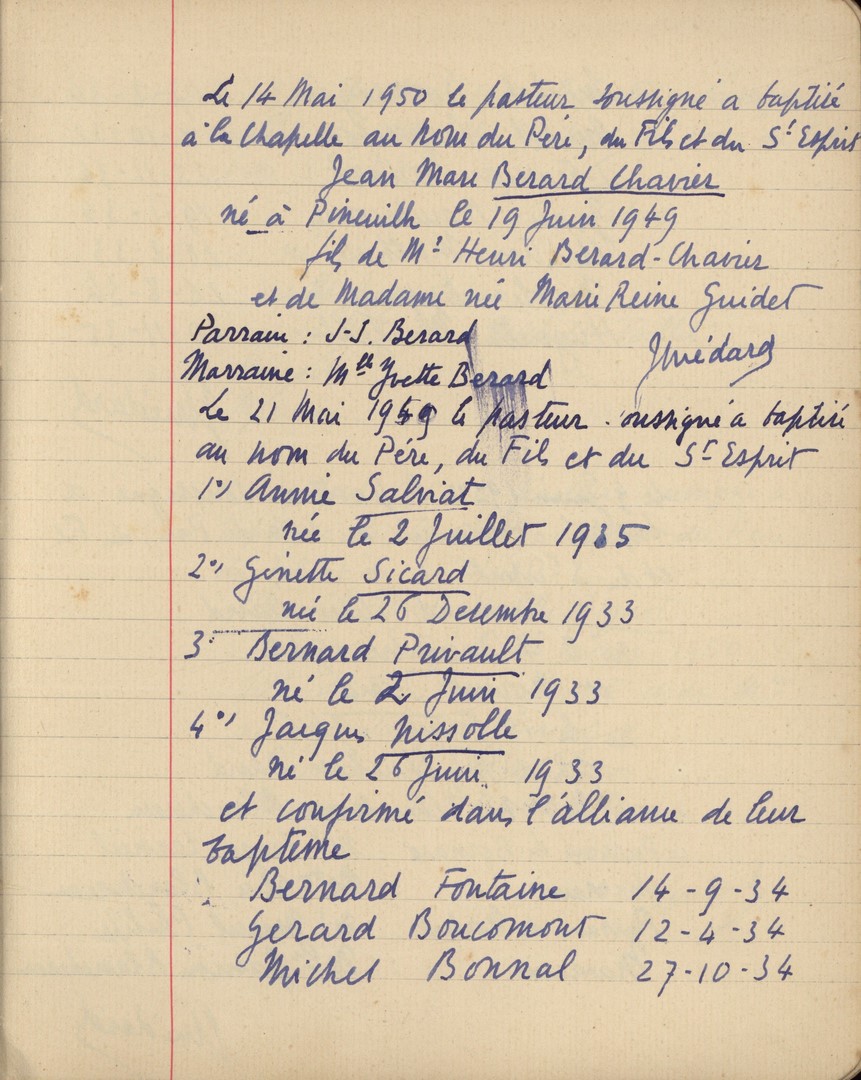 Le 14 Mai 1950 le pasteur soussigné a baptisé
à la Chapelle au nom du Père, du Fils et du St Esprit
Jean Marc Berard Chavier
né à Pineuilh le 19 Juin 1949
fils de Mr Henri Berard-Chavier
et de Madame née Marie Reine Guidet
Parrain : J-J. Berard
Marraine : Melle Yvette Berard
Le 21 Mai le pasteur soussigné a baptisé
au nom du Père, du Fils et du St Esprit
1°/ Annie Salviat
née le 2 Juillet 1935
2°/ Ginette Sicard
née le 26 Desembre 1933
3° Bernard Privault
né le 2 Juin 1933
4°/ Jacques Nissolle
né le 26 Juin 1933
et confirmé dans l'alliance de leur
baptême
Bernard Fontaine 14-9-34
Gerard Boucomont 12-4-34
Michel Bonnal 27-10-34